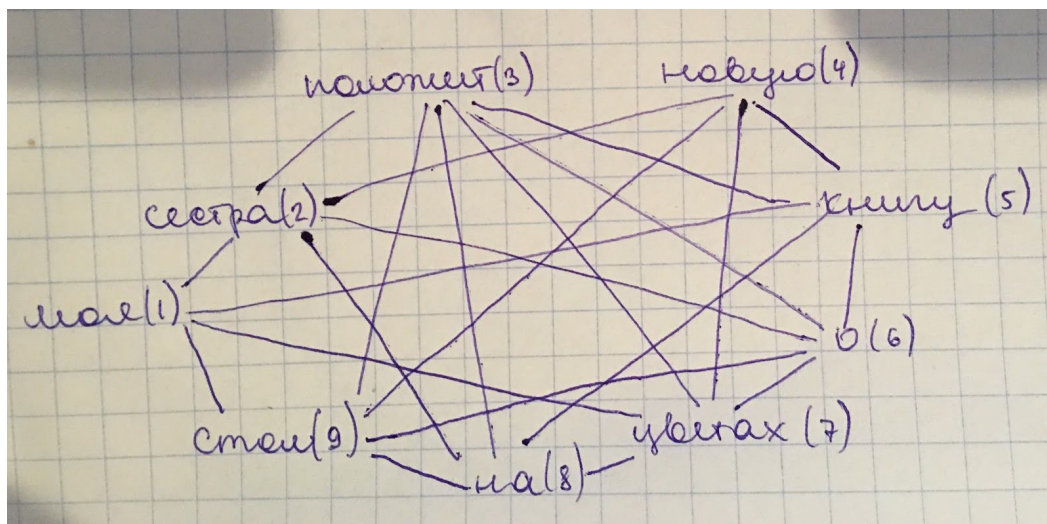 положит(3)
новую(4)
сестра(2)
книгу (5)
моя(1)
о(6)
стол(9)
цветах (7)
на(8)